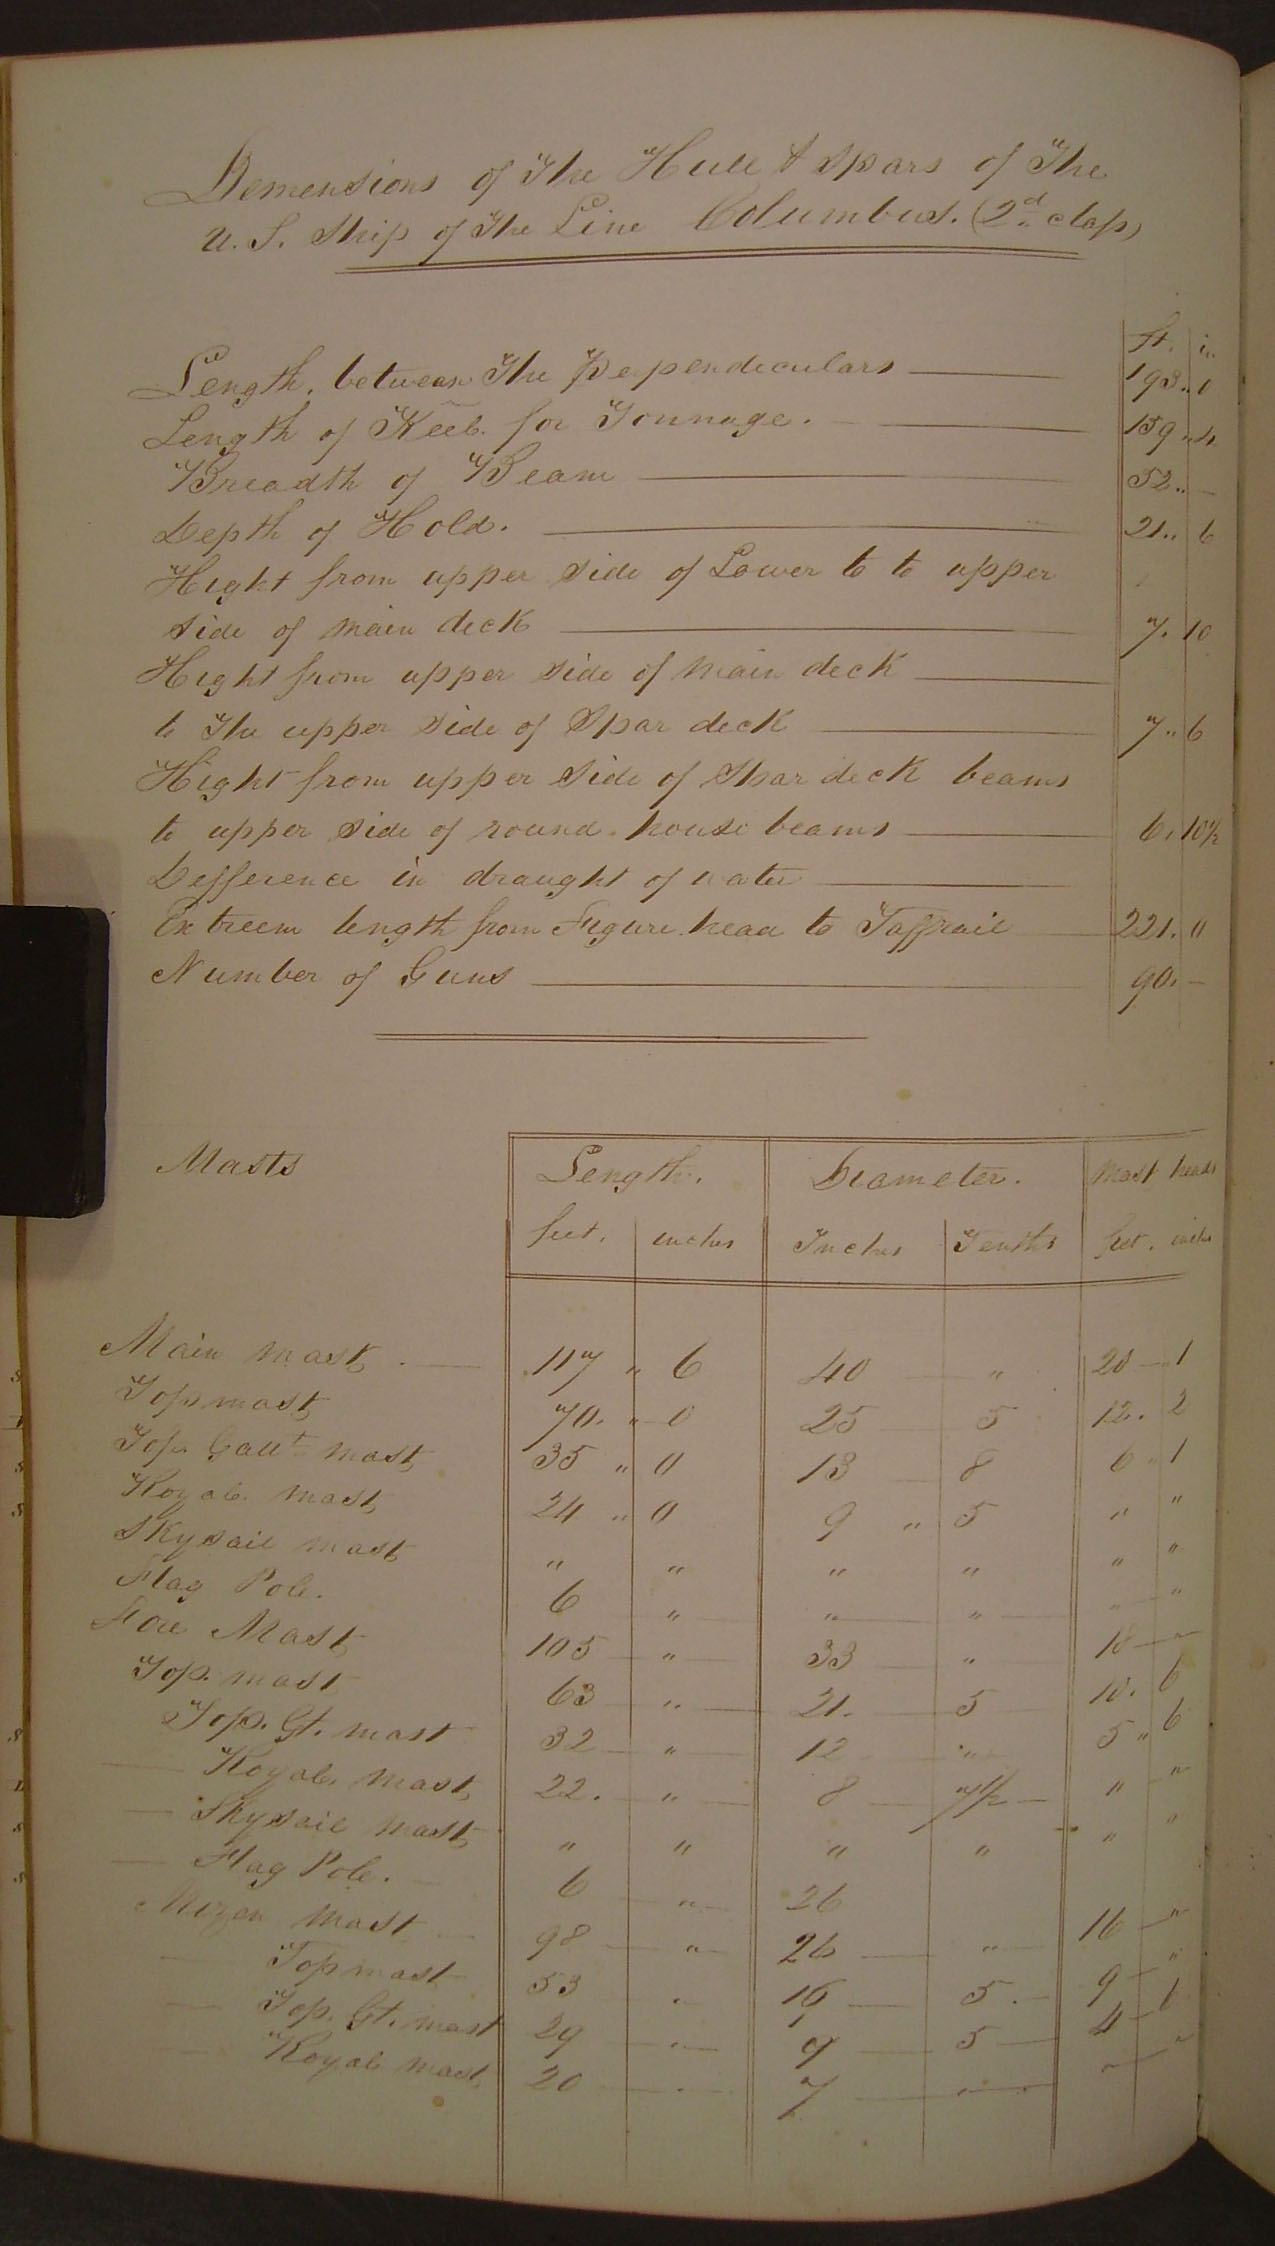 Demensions of The Hull & Spars of The
U. S. Ship of The Line Columbus. (2d class)
ft. in
Length, between The Perpendeculars 193 .. 0
Length of Keel for Tonnage. 159 .. 4
Breadth of Beam 52 .. —
Depth of Hold. 21 .. 6
Hight from upper side of Lower to to upper
side of main deck 7. 10
Hight from upper side of main deck
to The upper side of Spar deck 7 .. 6
Hight from upper side of Spar deck beams
to upper side of round-house beams 6, 10½
Defference in draught of water
Extreem length from Figure head to Taffrail 221. 0
Number of Guns 90, —
Masts Length. Diameter. Mast heads
feet, inches Inches Tenths feet. inches
Main mast. 117 " 6 40 " 20 " 1
Topmast 70. " 0 25 5 12. 2
Top Gallt mast 35 " 0 13 8 6 " 1
Royal mast 24 " 0 9 " 5 " "
Skysail mast " " " " " "
Flag Pole. 6 " " " " "
Fore Mast 105 " 33 " 18 "
Top. mast 63 " 21. 5 10. 6
Top. Gt. mast 32 " 12 " 5 " 6
— Royal mast 22. " 8 7½ " "
— Skysail mast " " " " " "
— Flag Pole. 6 " 26
Mizen mast 98 " 26 " 16 "
— Topmast 53 " 16 5. 9 "
— Top. Gt. mast 29 " 9 5 4 6
— Royal mast 20 " 7 " " "